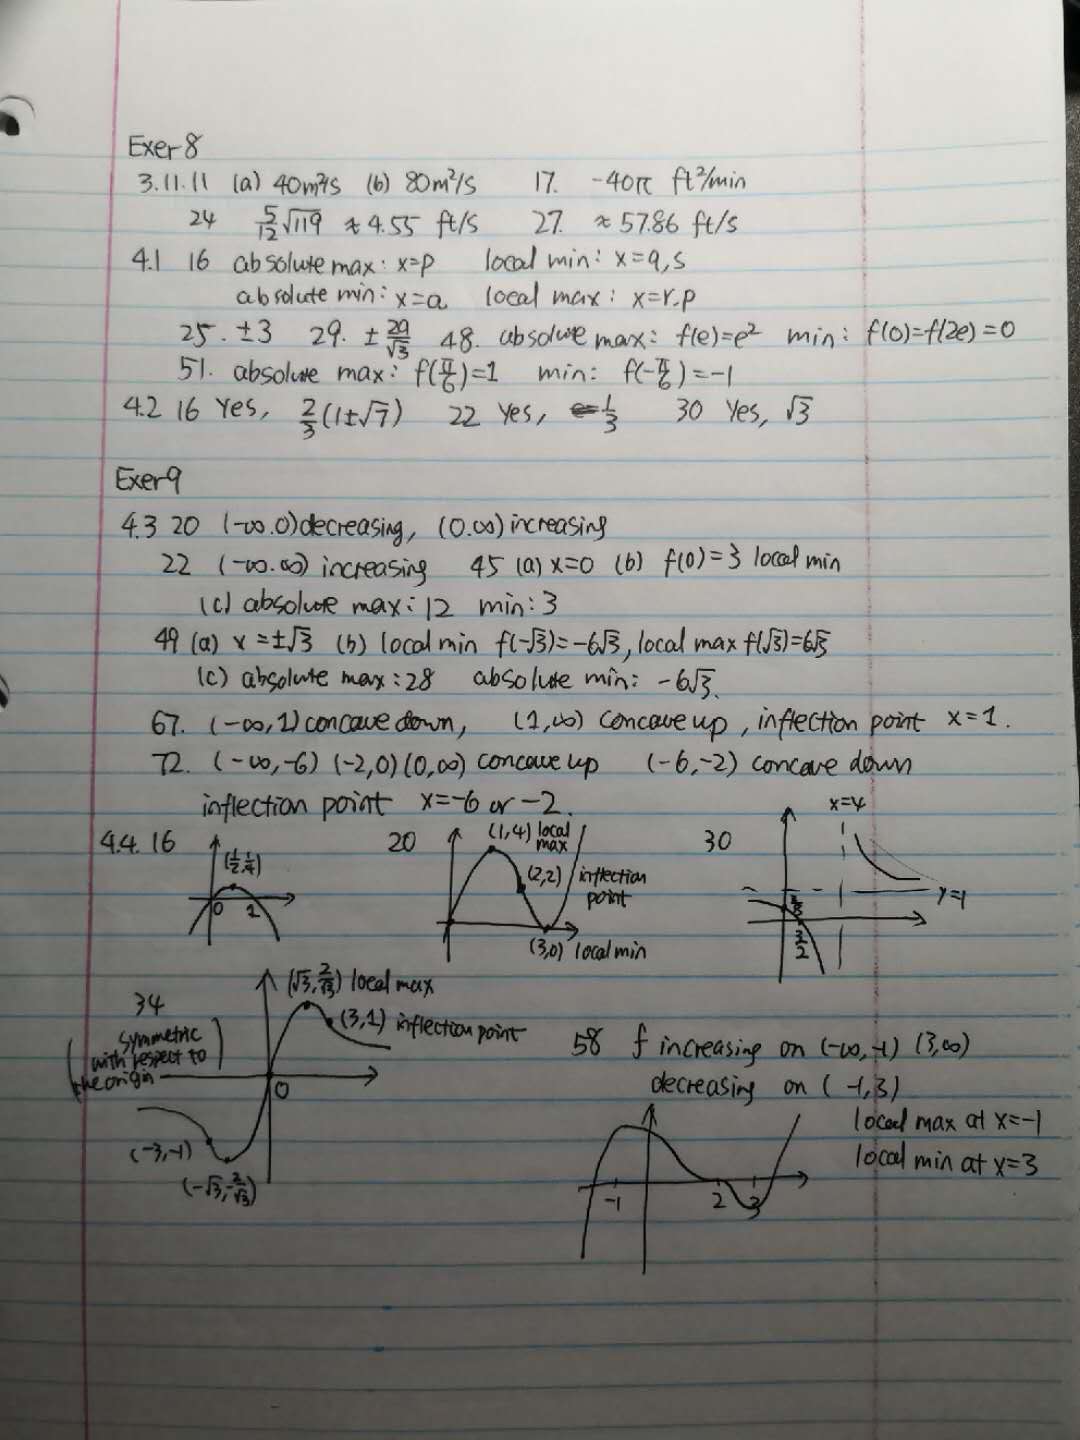 Exer 8
3.11.11 (a) 40m²/s (b) 80m²/s 17. -40π ft²/min
24 5/12√119 ≈ 4.55 ft/s 27. ≈ 57.86 ft/s
4.1 16 absolute max: x=p local min: x=q,s
absolute min: x=a local max: x=r.p
25. ±3 29. ± 2a/√3 48. absolute max: f(e)=e² min: f(0)=f(2e)=0
51. absolute max: f(π/6)=1 min: f(-π/6)=-1
4.2 16 Yes, 2/3(1±√7) 22 Yes, 1/3 30 Yes, √3
Exer 9
4.3 20 (-∞.0) decreasing, (0.∞) increasing
22 (-∞.∞) increasing 45 (a) x=0 (b) f(0)=3 local min
(c) absolute max: 12 min: 3
49 (a) x=±√3 (b) local min f(-√3)=-6√3, local max f(√3)=6√3
(c) absolute max: 28 absolute min: -6√3.
67. (-∞,1) concave down, (1,∞) concave up, inflection point x=1.
72. (-∞,-6) (-2,0) (0,∞) concave up (-6,-2) concave down
inflection point x=-6 or -2.
4.4. 16
(1/2,1/4)
0 1
20
(1,4) local
max
(2,2) inflection
point
(3,0) local min
30
x=4
y=1
3/2
34
(symmetric
with respect to
the origin)
(√3, 2/√3) local max
(3,1) inflection point
0
(-3,-1)
(-√3, -2/√3)
58 f increasing on (-∞,-1) (3,∞)
decreasing on (-1,3)
local max at x=-1
local min at x=3
-1 2 3